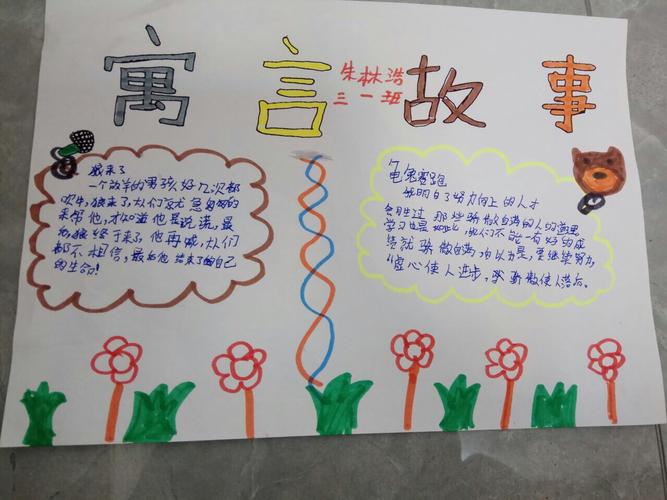 寓言故事
朱林浩
三一班
狼来了
一个放羊的男孩,好几次都
吹牛,狼来了,人们急匆匆的
来帮他,才知道他是说谎,最
后狼终于来了,他再喊,人们
都不相信,最后他结束了的自己
的生命!
龟兔赛跑
我明白了努力向上的人才
会胜过那些骄傲自满的人的道理
学习也是如此,我们不能一有好的成
绩就骄傲自满,自以为是,要继续努力,
"虚心使人进步,骄傲使人落后。